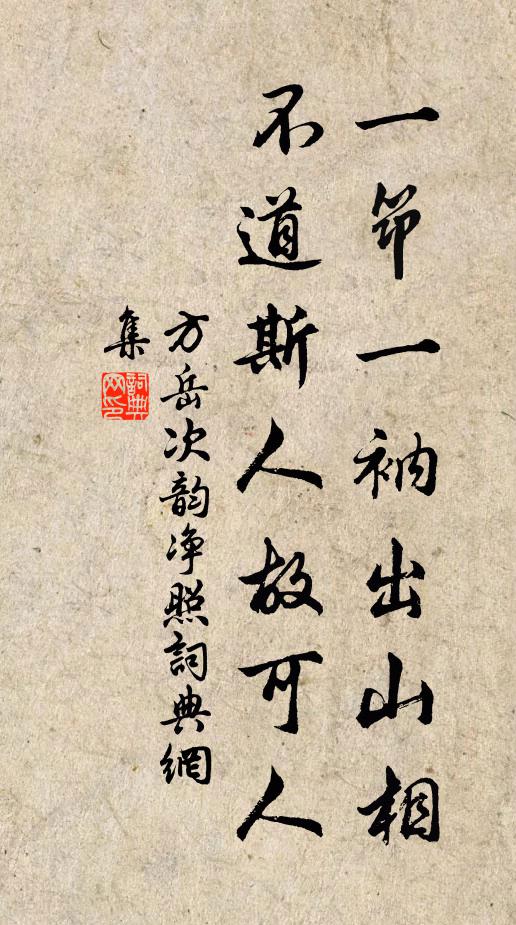 一筇一衲出山相
不道斯人故可人
方岳次韵净照詞典網
集
詞典网印